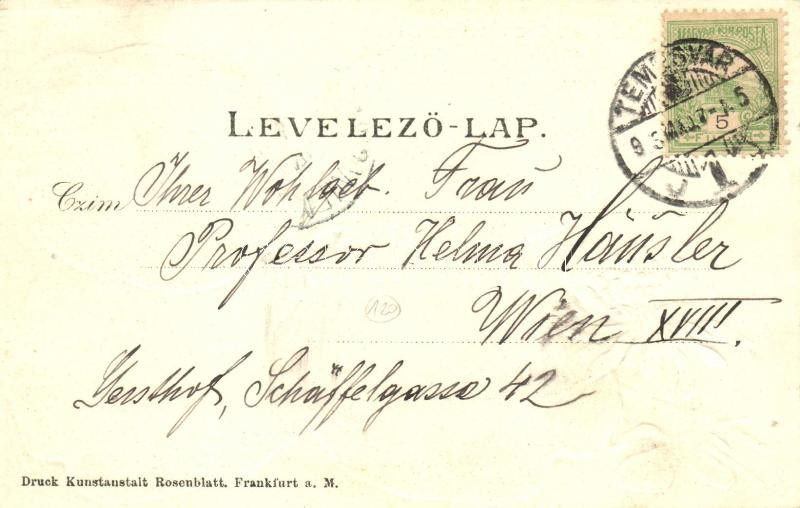 MAGYAR KIR. POSTA
5
TEMESVÁR
LEVELEZŐ-LAP.
Czim Ihrer Wohlgeb. Frau
Professor Helma Häusler
Wien XVIII.
120
Gersthof, Schäffelgasse 42
Druck Kunstanstalt Rosenblatt. Frankfurt a. M.